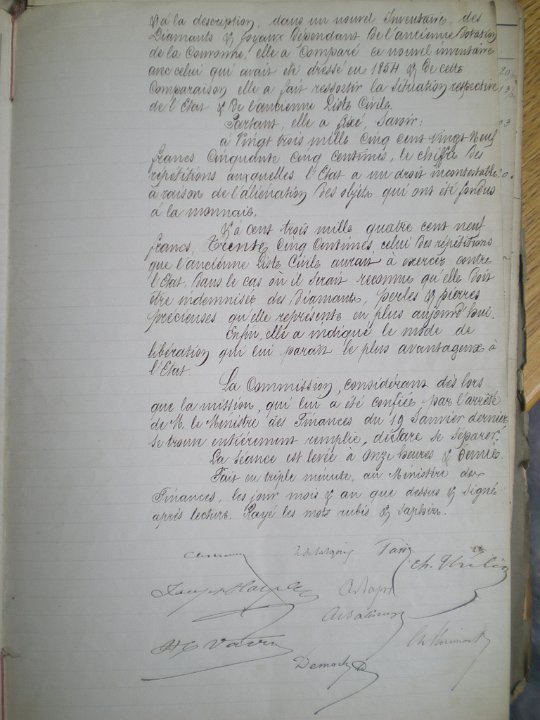 & à la description, dans un nouvel Inventaire, des
Diamants & Joyaux dépendant de l'ancienne Dotation
de la Couronne, elle a comparé ce nouvel inventaire
avec celui qui avait été dressé en 1854 & de cette
Comparaison elle a fait ressortir la situation respective
de l'Etat & de l'ancienne Liste Civile.
Partant, elle a fixé, savoir:
à Vingt trois mille cinq cent vingt neuf
francs Cinquante cinq centimes, le chiffre des
répétitions auxquelles l'Etat a un droit incontestable
à raison de l'aliénation des objets qui ont été fondus
à la monnaie.
& à cent trois mille quatre cent neuf
francs, Trente Cinq Centimes celui des répétitions
que l'ancienne Liste Civile aurait à exercer contre
l'Etat, dans le cas où il serait reconnu qu'elle doit
être indemnisée des Diamants, perles & pierres
précieuses qu'elle représente en plus aujourd'hui.
Enfin, elle a indiqué le mode de
libération qui lui parait le plus avantageux à
l'Etat
La Commission, considérant dès lors
que la mission, qui lui a été confiée par l'arrêté
de M. le Ministre des Finances, du 19 Janvier dernier,
se trouve entièrement remplie, déclare se séparer.
La séance est levée à onze heures & demie
Fait en triple minute, au Ministère des
Finances, les jour mois & an que dessus & signé
après lecture. Rayé les mots rubis & saphirs.